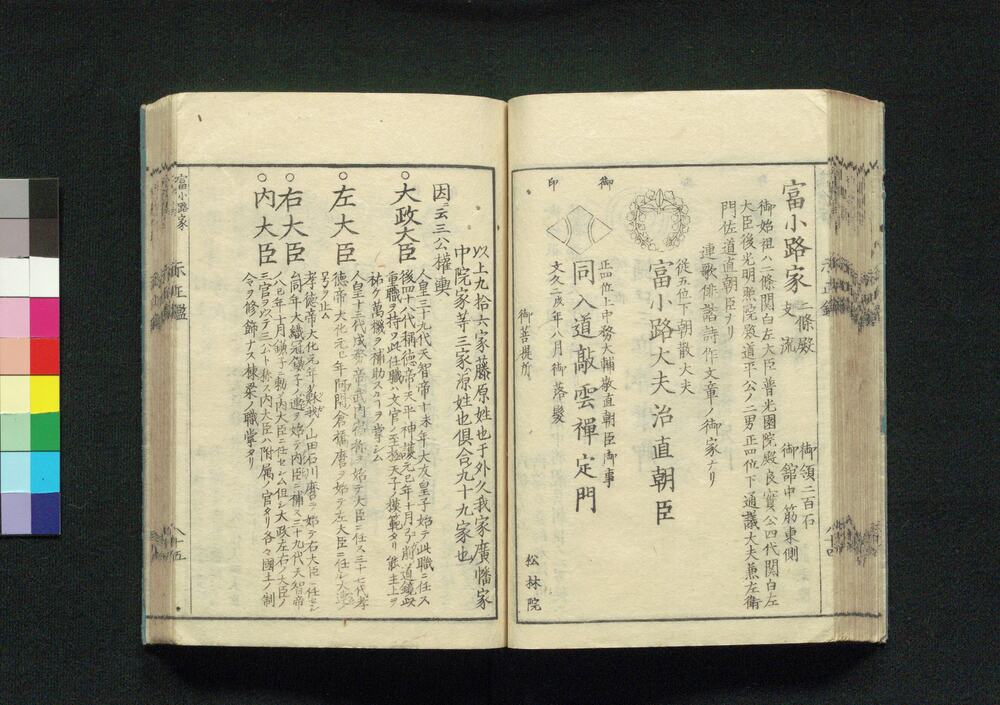 富小路家
二條殿
支流
御領二百石
御舘中筋東側
御始祖ハ二條関白左大臣普光園院殿良實公四代関白左
大臣後光明照院殿道平公ノ二男正四位下通議大夫兼左衛
門佐道直朝臣ナリ
連歌俳諧詩作文章ノ御家ナリ
従五位下朝散大夫
富小路大夫治直朝臣
正四位上中務大輔敬直朝臣御事
同入道敲雲禅定門
文久二戌年八月御落髪
御印
御菩提所
松林院
八十四
以上九拾六家藤原姓也于外久我家廣幡家
中院家等三家源姓也倶合九十九家也
因云三公權輿
○大政大臣
人皇三十九代天智帝十未年大友皇子始テ此職ニ任ス
後四十八代稱徳帝天平神護元巳年十月
重職ヲ持ツ此任職ハ文官ノ至極天子ノ摸範タリ
祐ケ萬機ヲ補助スルヿヲ掌シム
○左大臣
人皇十三代成務帝武内宿祢ヲ始テ大臣ニ任ス三十七代孝
徳帝大化元巳年阿閇倉橋麿ヲ始テ左大臣ニ任シ
号ヲ止ム
○右大臣
孝徳帝大化元年蘇我ノ山田石川麿ヲ始テ右大臣ニ任シ
○内大臣
台同年大織冠鎌子ノ連ヲ始テ内臣ニ補ス三十九代天智帝
八巳年十月鎌子ニ勅シ内大臣ニ任セシム但シ大政左右ノ大臣ノ
三官ヲ以テ三公ト称ス内大臣ハ附属ノ官タリ各々國土ノ制
令ヲ修飾ナス棟梁ノ職掌タリ
富小路家
八十五